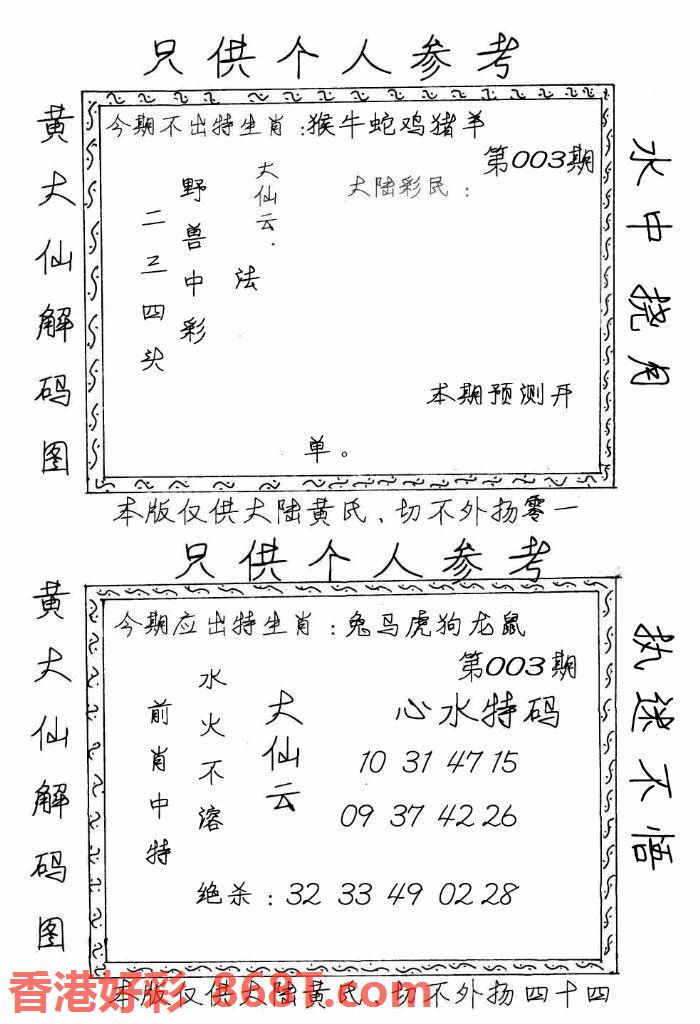 只供个人参考
黄大仙解码图
今期不出特生肖：猴牛蛇鸡猪羊
第003期
大陆彩民：
大仙云．
法
野兽中彩
二三四头
本期预测开
单。
水中挠月
本版仅供大陆黄氏、切不外扬零一
只供个人参考
黄大仙解码图
今期应出特生肖：兔马虎狗龙鼠
第003期
心水特码
大仙云
水火不溶
前肖中特
10 31 47 15
09 37 42 26
绝杀：32 33 49 02 28
执迷不悟
本版仅供大陆黄氏、切不外扬四十四
香港好彩 868T.com